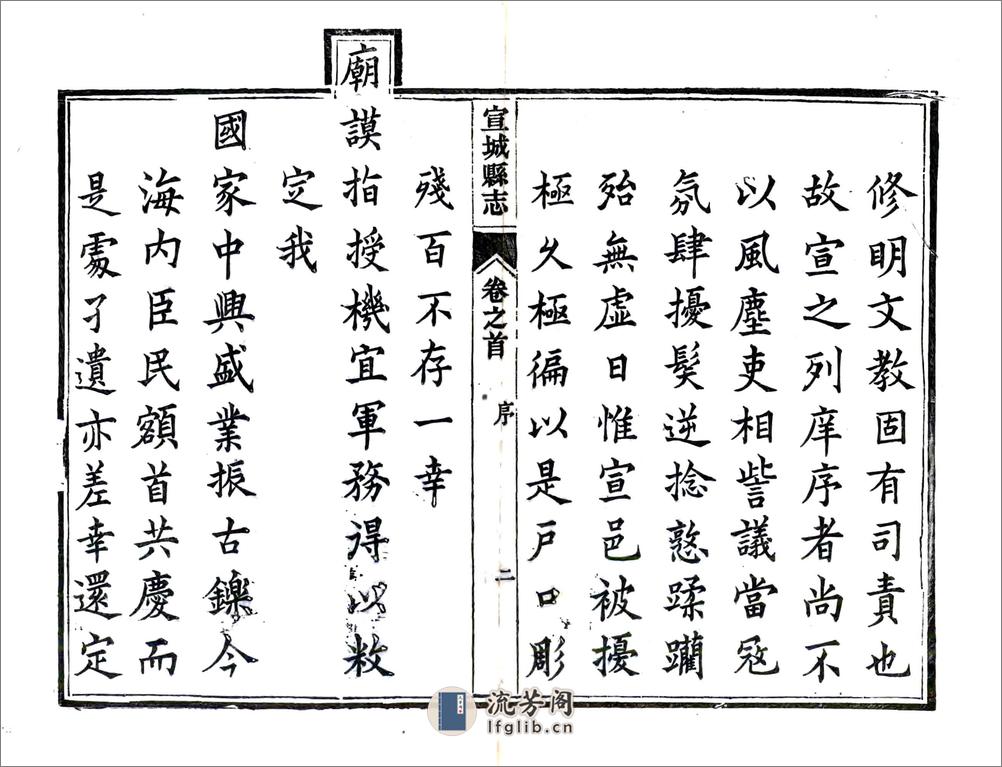 修明文教固有司責也
故宣之列庠序者尚不
以風塵吏相訾議當寇
氛肆擾髮逆捻憝蹂躪
殆無虛日惟宣邑被擾
極久極徧以是戶口彫
宣城縣志
卷之首
序
二
殘百不存一幸
廟謨指授機宜軍務得以敉
定我
國家中興盛業振古鑠今
海內臣民額首共慶而
是處孑遺亦差幸還定
流芳阁
lfglib.cn